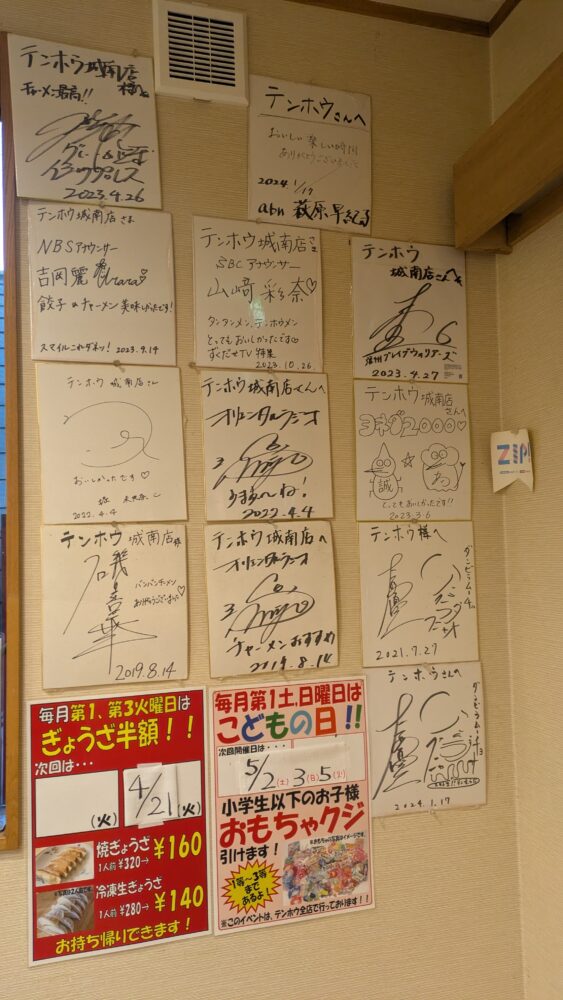 テンホウ城南店
様へ
チャーメン最高!!
2023.4.26
テンホウさんへ
おいしい楽しい時間
ありがとうございました
2024 1/17
abn 萩原早紀子
テンホウ城南店さま
NBSアナウンサー
吉岡麗
餃子&チャーメン美味しかったです!
スマイルこれダネッ! 2023.9.14
テンホウ城南店さま
SBCアナウンサー
山﨑彩奈♡
タンタンメン、テンホウメン
とってもおいしかったです
ずくだせTV 特集
2023.10.26.
テンホウ
城南店さんへ
6
信州ブレイブウォリアーズ
2023.4.27
テンホウ 城南店さん
おいしかったです♡
2022.4.4
テンホウ城南店さんへ
オリエンタルラジオ
うまぁ〜い!
2022.4.4
テンホウ城南店
さんへ
ヨネダ2000♡
誠
☆
とってもおいしかったです!!
2023.3.6
テンホウ城南店様
磯貴華
バンバンチャーメン
ありがとうございました♡
2019.8.14
テンホウ城南店へ
オリエンタルラジオ
チャーメンおすすめ
2019.8.14
テンホウ様へ
ダンビラムーチョ
2021.7.27
テンホウさんへ
ダンビラムーチョ
2024.1.17
毎月第1、第3火曜日は
ぎょうざ半額!!
次回は・・・
(火) 4/21(火)
焼きぎょうざ
1人前¥320→ ¥160
冷凍生ぎょうざ
1人前¥280→ ¥140
お持ち帰りできます!
毎月第1土,日曜日は
こどもの日!!
次回開催日は・・・
5/2(土) 3(日) 5(火)
小学生以下のお子様
おもちゃクジ
引けます!
※おもちゃの写真はイメージです。
1等〜3等
まで
あるよ!
※このイベントは、テンホウ全店で行っております!!